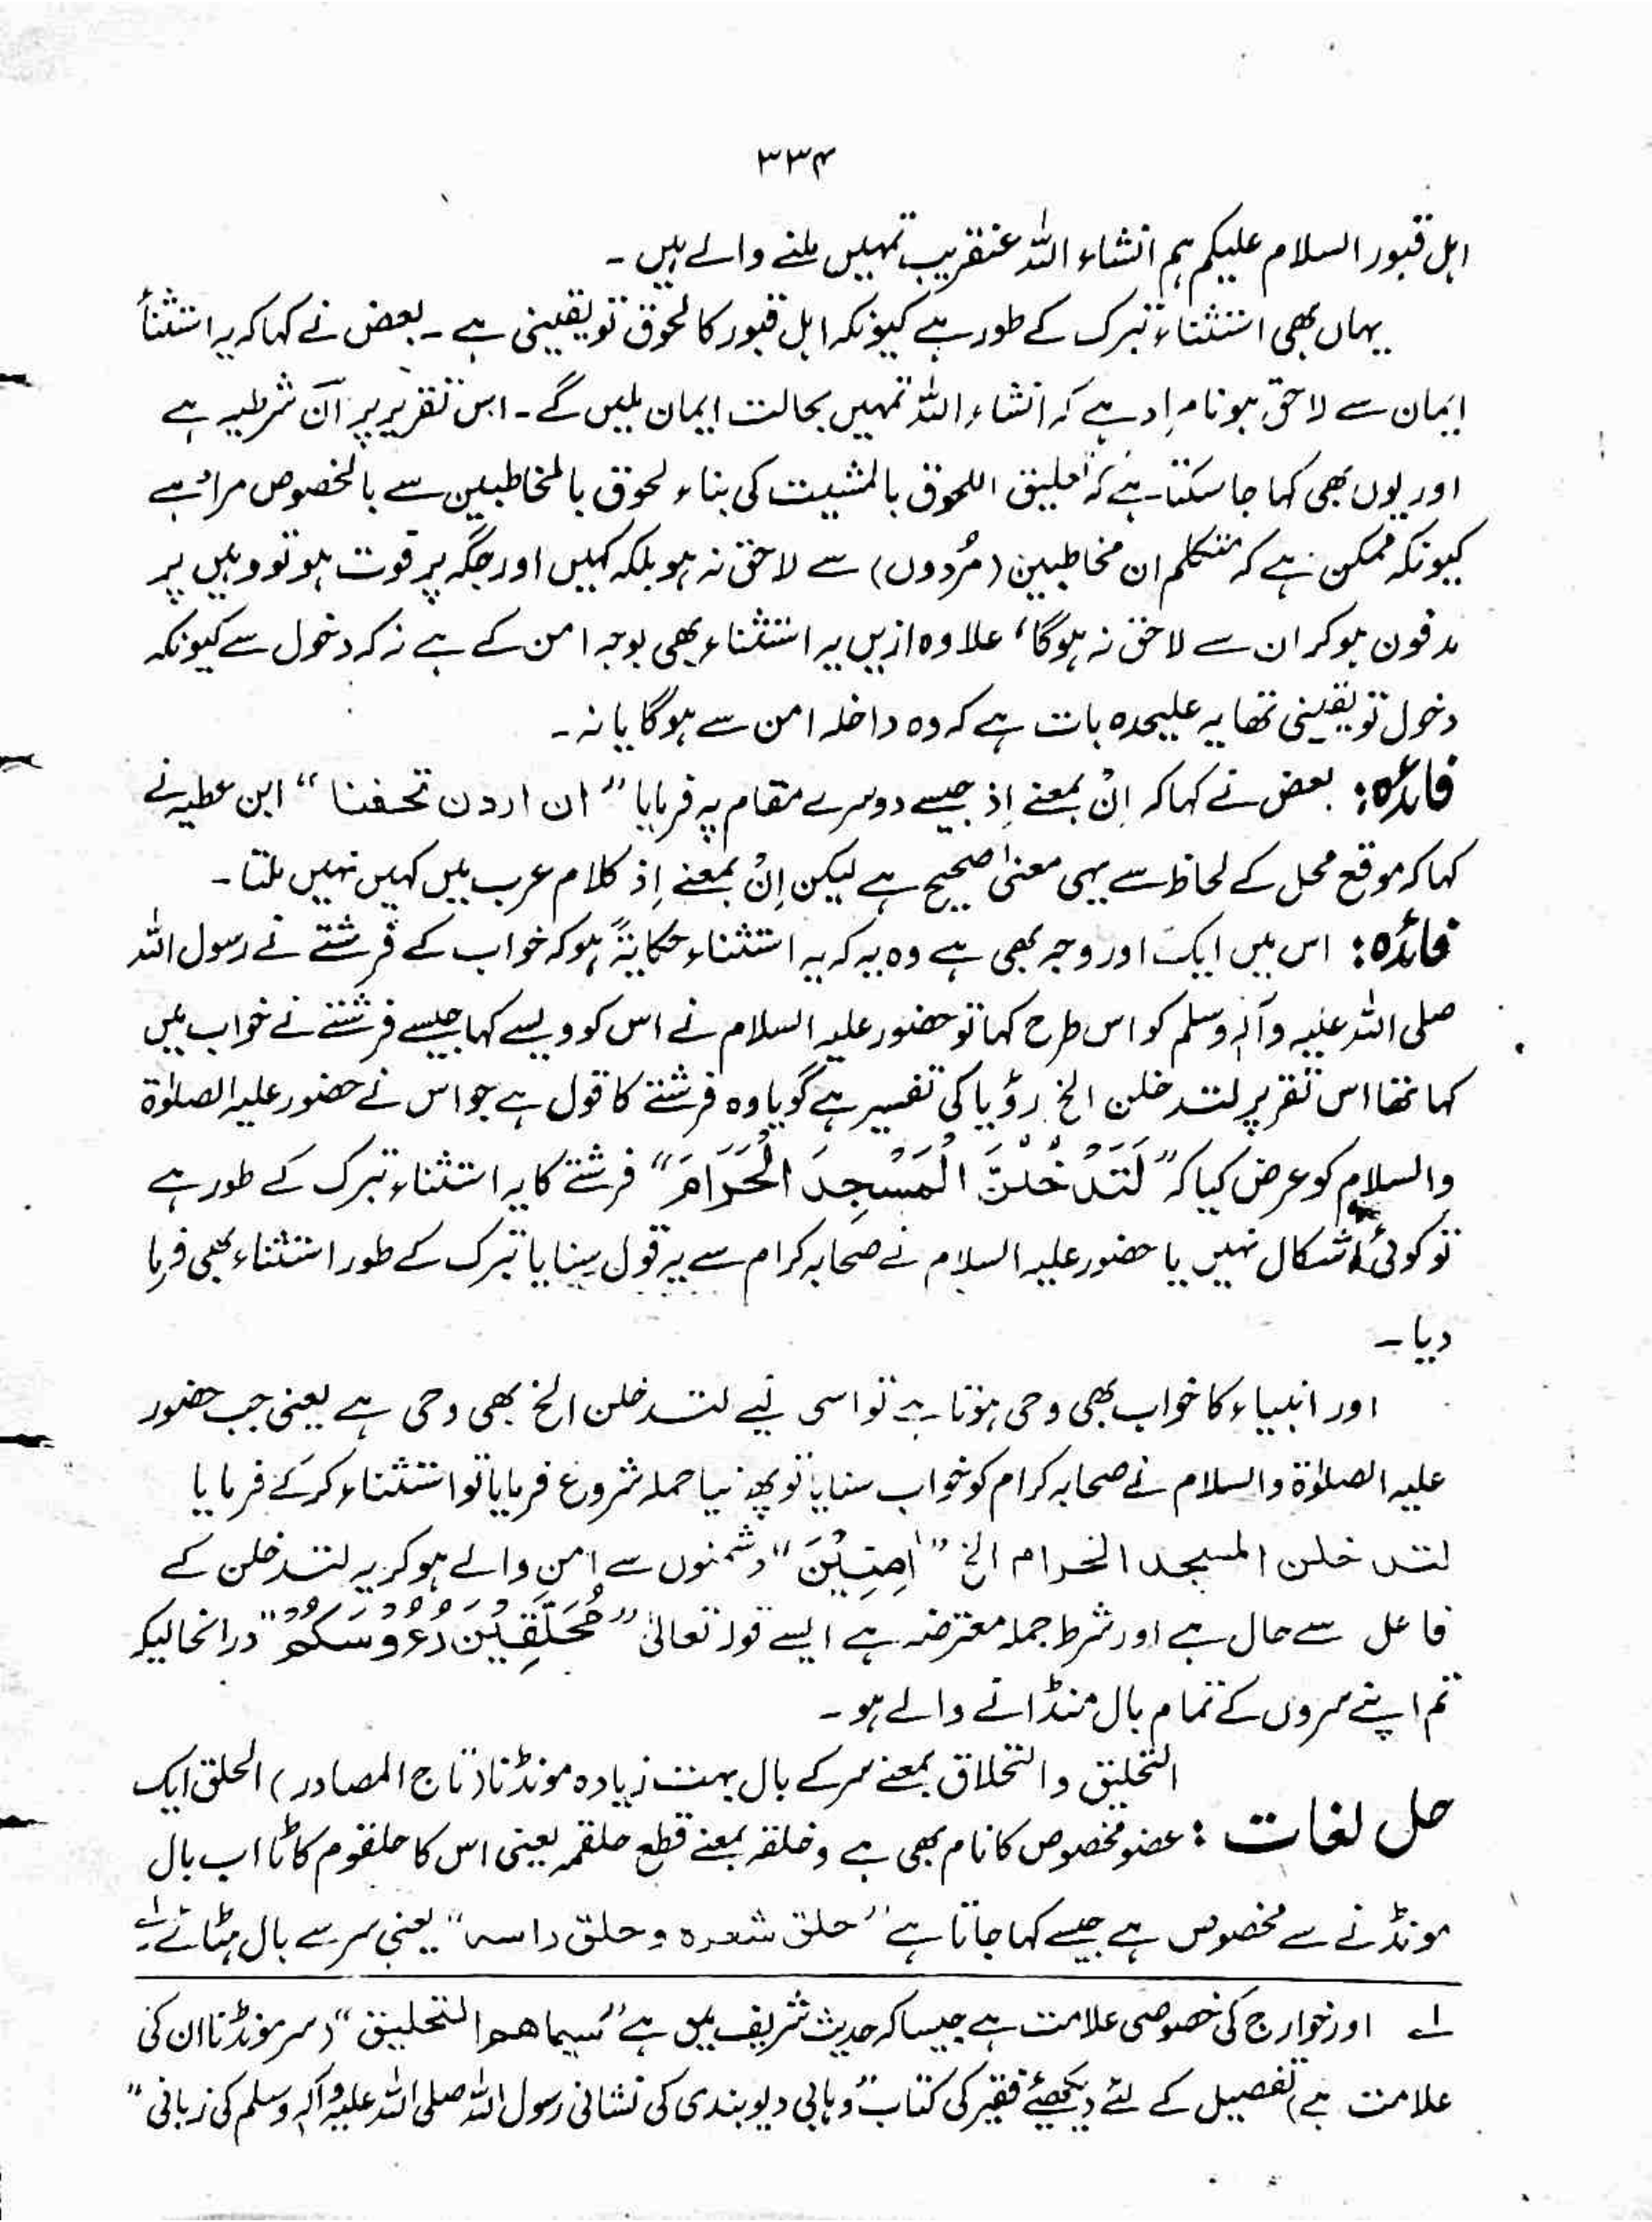 ۳۳۴
اہل قبور السلام علیکم ہم انشاء اللہ عنقریب تمہیں ملنے والے ہیں ۔
یہاں بھی استثناء تبرک کے طور ہے کیونکہ اہل قبور کا لحوق تو یقینی ہے ۔ بعض نے کہا کہ یہ استثنأ
ایمان سے لاحق ہونا مراد ہے کہ انشاء اللہ تمہیں بحالت ایمان ملیں گے ۔ اس تقریر پر ان شرطیہ ہے
اور یوں بھی کہا جا سکتا ہے کہ تعلیق اللحوق بالمشیت کی بناء لحوق بالمخاطبین سے بالخصوص مراد ہے
کیونکہ ممکن ہے کہ متکلم ان مخاطبین (مُردوں) سے لاحق نہ ہو بلکہ کہیں اور جگہ پر فوت ہو تو وہیں پر
مدفون ہو کر ان سے لاحق نہ ہوگا، علاوہ ازیں یہ استثناء بھی بوجہ امن کے ہے نہ کہ دخول سے کیونکہ
دخول تو یقینی تھا یہ علیحدہ بات ہے کہ وہ داخلہ امن سے ہوگا یا نہ ۔
فائدہ: بعض نے کہا کہ اِنْ بمعنے اِذ جیسے دوسرے مقام پہ فرمایا " ان اردن تحفنا " ابن عطیہ نے
کہا کہ موقع محل کے لحاظ سے یہی معنیٰ صحیح ہے لیکن اِنْ بمعنے اِذ کلام عرب میں کہیں نہیں ملتا ۔
فائدہ: اس میں ایک اور وجہ بھی ہے وہ یہ کہ یہ استثناء حکایۃً ہو کہ خواب کے فرشتے نے رسول اللہ
صلی اللہ علیہ وآلہ وسلم کو اس طرح کہا تو حضور علیہ السلام نے اس کو ویسے کہا جیسے فرشتے نے خواب میں
کہا تھا اس تقریر پر لتدخلن الخ رؤیا کی تفسیر ہے گویا وہ فرشتے کا قول ہے جو اس نے حضور علیہ الصلوٰۃ
والسلام کو عرض کیا کہ " لَتَدْخُلُنَّ الْمَسْجِدَ الْحَرَامَ " فرشتے کا یہ استثناء تبرک کے طور ہے
تو کوئی اشکال نہیں یا حضور علیہ السلام نے صحابہ کرام سے یہ قول سنایا تبرک کے طور استثناء بھی فرما
دیا ۔
اور انبیاء کا خواب بھی وحی ہوتا ہے تو اسی لیے لتدخلن الخ بھی وحی ہے یعنی جب حضور
علیہ الصلوٰۃ والسلام نے صحابہ کرام کو خواب سنایا تو پھر نیا جملہ شروع فرمایا تو استثناء کرکے فرمایا
لتدخلن المسجد الحرام الخ " اٰمِنِیْنَ " دشمنوں سے امن والے ہو کر یہ لتدخلن کے
فاعل سے حال ہے اور شرط جملہ معترضہ ہے ایسے قولہ تعالیٰ " مُحَلِّقِیْنَ رُءُوْسَکُمْ " درانحالیکہ
تم اپنے سروں کے تمام بال منڈانے والے ہو ۔
التحلیق والتحلاق بمعنے سر کے بال بہت زیادہ مونڈنا (تاج المصادر) الحلق ایک
حل لغات : عضو مخصوص کا نام بھی ہے وحلقہ بمعنے قطع حلقمہ یعنی اس کا حلقوم کاٹا اب بال
مونڈنے سے مخصوص ہے جیسے کہا جاتا ہے " حلق شعرہ و حلق راسہ " یعنی سر سے بال ہٹائے لے
لے اور خوارج کی خصوصی علامت ہے جیسا کہ حدیث شریف میں ہے " سیماھم التحلیق " (سر مونڈنا ان کی
علامت ہے) تفصیل کے لئے دیکھئے فقیر کی کتاب " وہابی دیوبندی کی نشانی رسول اللہ صلی اللہ علیہ وآلہ وسلم کی زبانی "